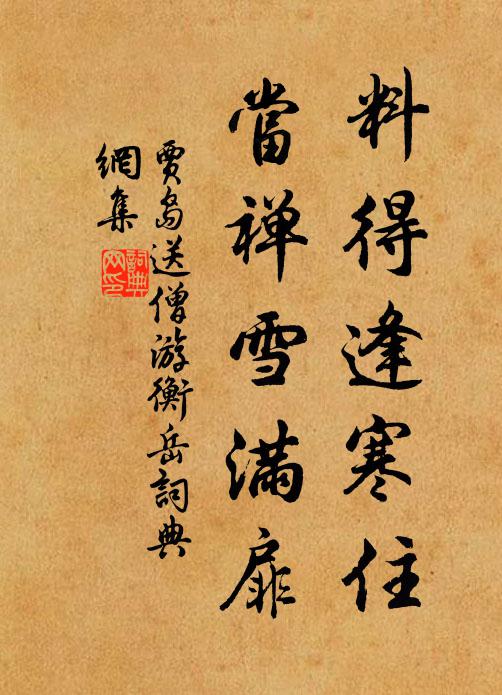 料得逢寒住
當禅雪满扉
賈島送僧游衡岳詞典
網集
詞典
网印